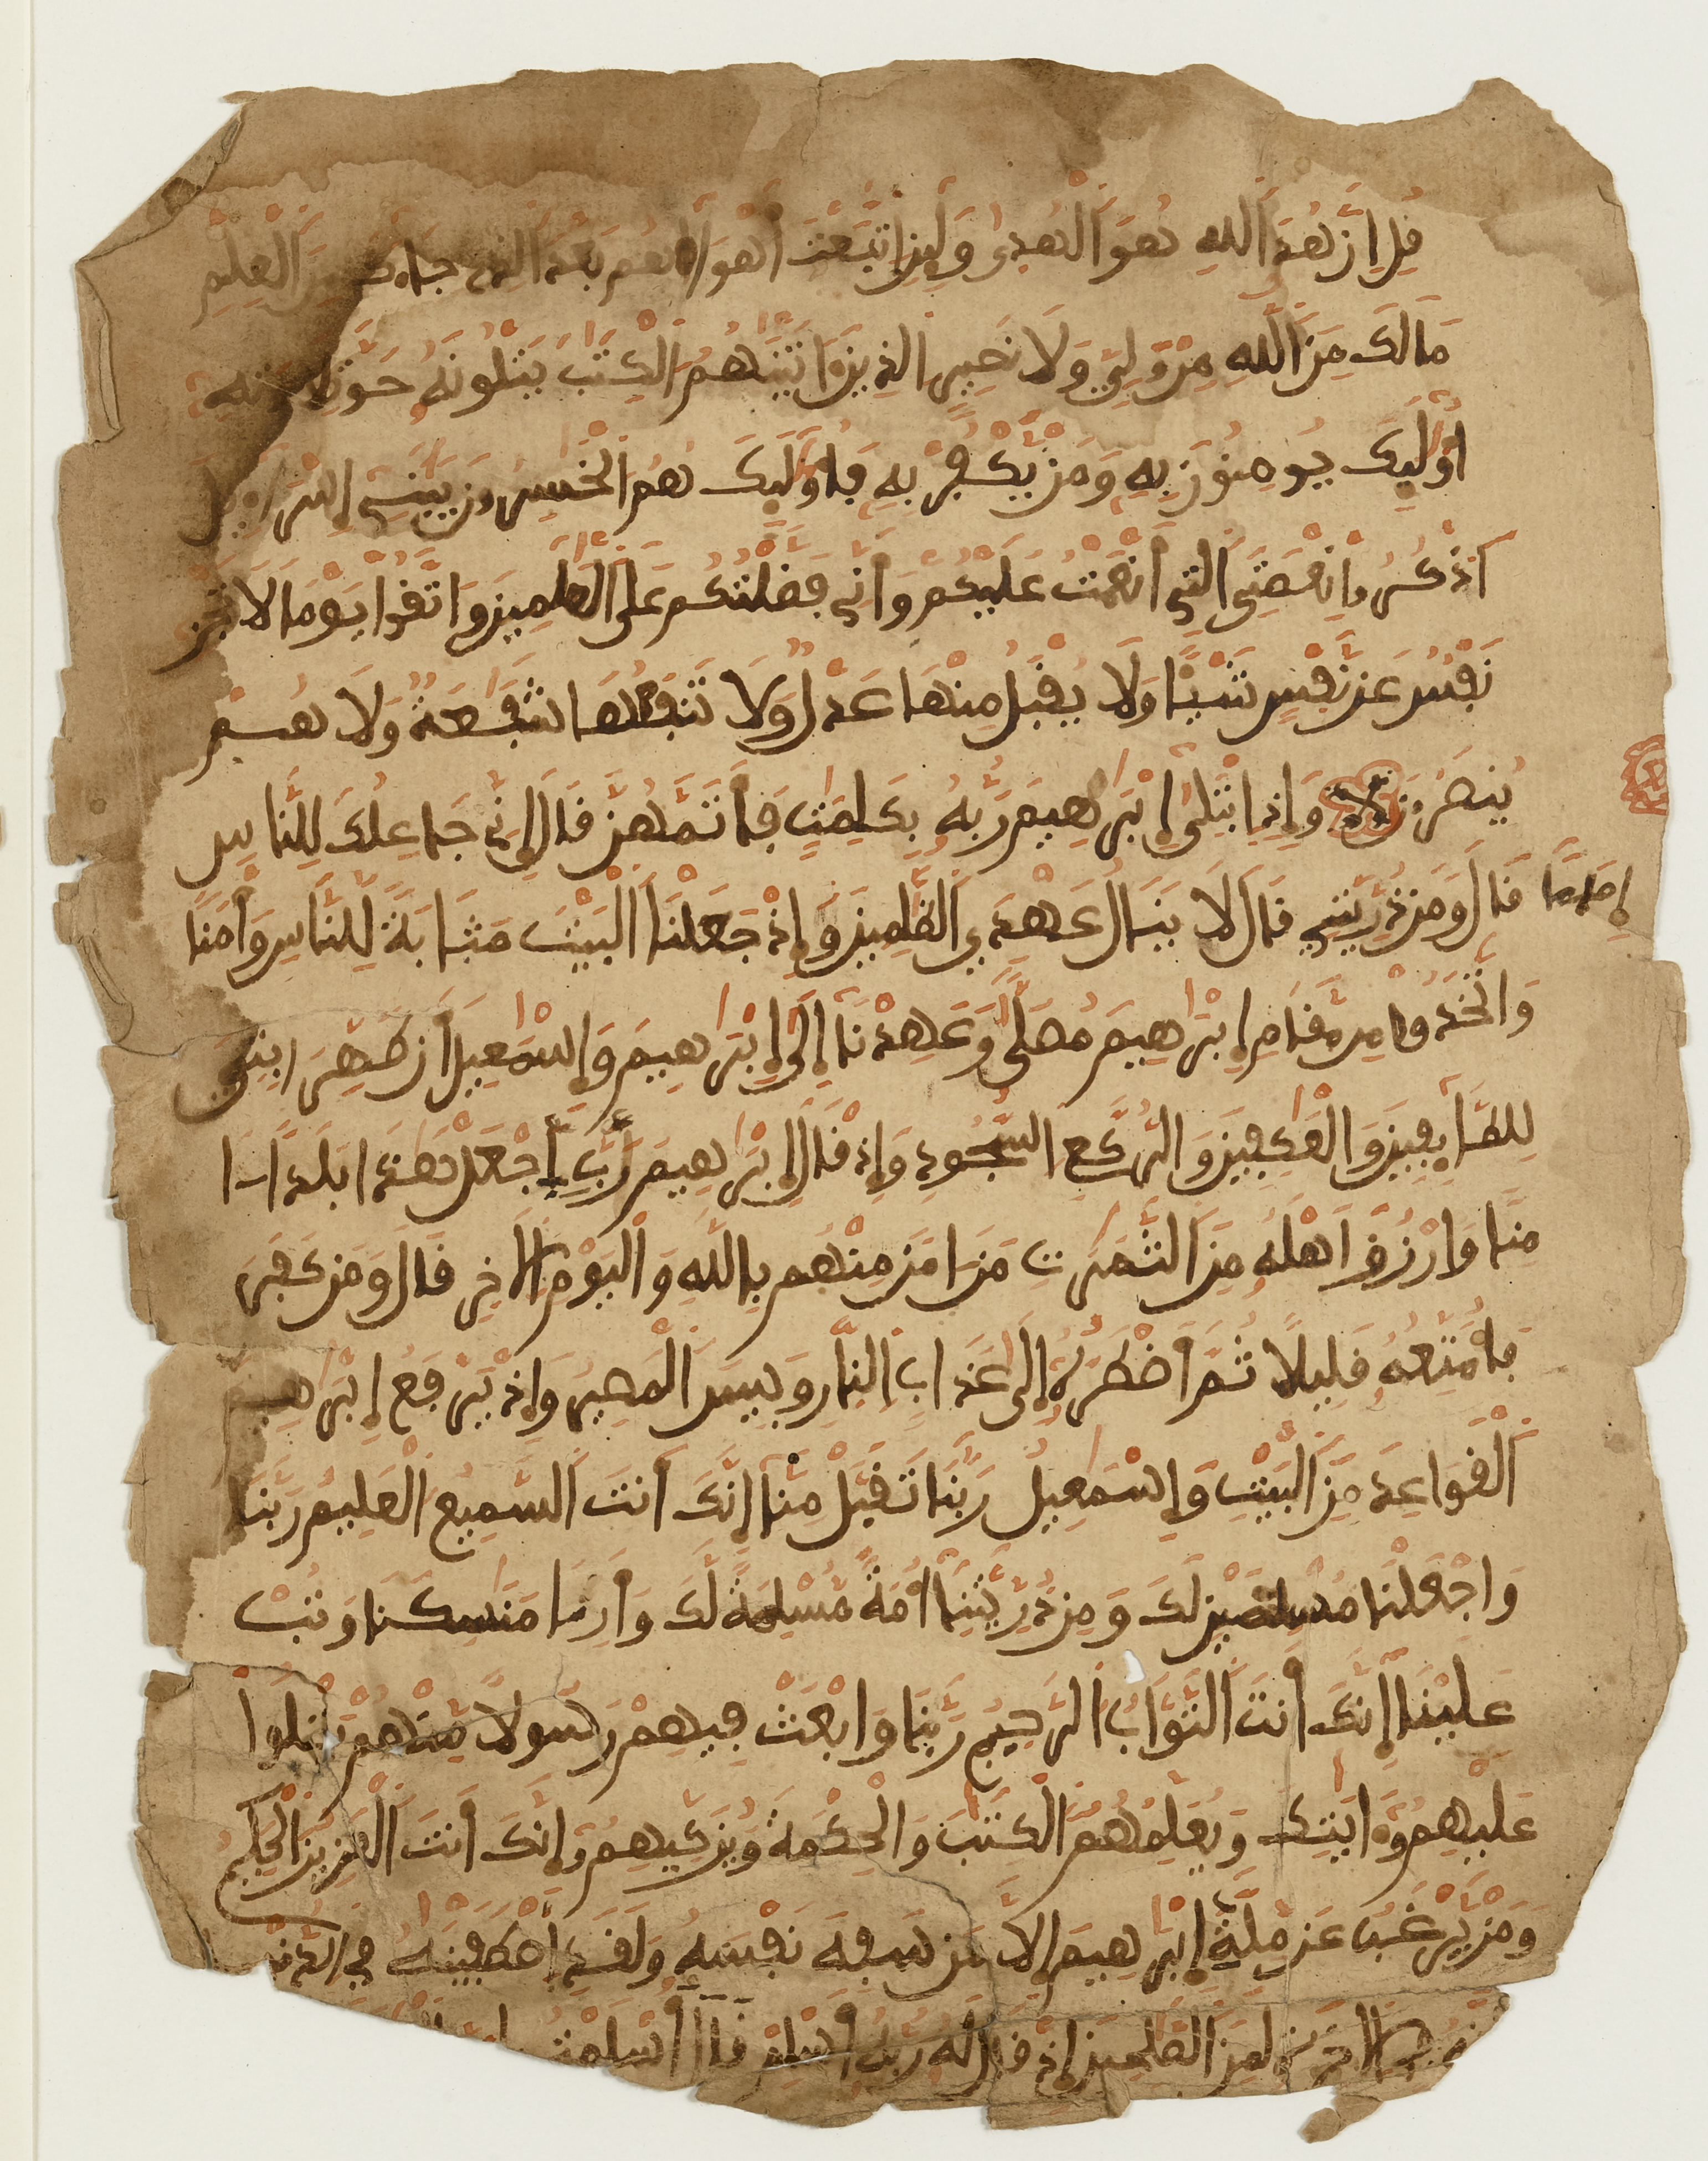 قل إن هدى الله هو الهدى ولين اتبعت أهواءهم بعد الذي جاءك من العلم
مالك من الله من ولي ولا نصير الذين ءاتينهم الكتب يتلونه حق تلاوته
أوليك يومنون به ومن يكفر به فأوليك هم الخسرون يبني إسراءيل
اذكروا نعمتي التي أنعمت عليكم وأني فضلتكم على العلمين واتقوا يوما لا تجزي
نفس عن نفس شيا ولا يقبل منها عدل ولا تنفعها شفعة ولا هم
ينصرون وإذ ابتلى إبرهيم ربه بكلمت فأتمهن قال إني جاعلك للناس
إماما قال ومن ذريتي قال لا ينال عهدي الظلمين وإذ جعلنا البيت مثابة للناس وأمنا
واتخذوا من مقام إبرهيم مصلى وعهدنا إلى إبرهيم وإسمعيل أن طهرا بيتي
للطايفين والعكفين والركع السجود وإذ قال إبرهيم رب اجعل هذا بلدا ا
منا وارزق أهله من الثمرت من امن منهم بالله واليوم الاخر قال ومن كفر
فأمتعه قليلا ثم أضطره إلى عذاب النار وبيس المصير وإذ يرفع إبرهيم
القواعد من البيت وإسمعيل ربنا تقبل منا إنك أنت السميع العليم ربنا
واجعلنا مسلمين لك ومن ذريتنا أمة مسلمة لك وأرنا منسكنا وتب
علينا إنك أنت التواب الرحيم ربنا وابعث فيهم رسولا منهم يتلوا
عليهم ءايتك ويعلمهم الكتب والحكمة ويزكيهم إنك أنت العزيز الحكيم
ومن يرغب عن ملة إبرهيم إلا من سفه نفسه ولقد اصطفينه في الدنيا
الاخرة لمن الصلحين إذ قال له ربه أسلم قال أسلمت